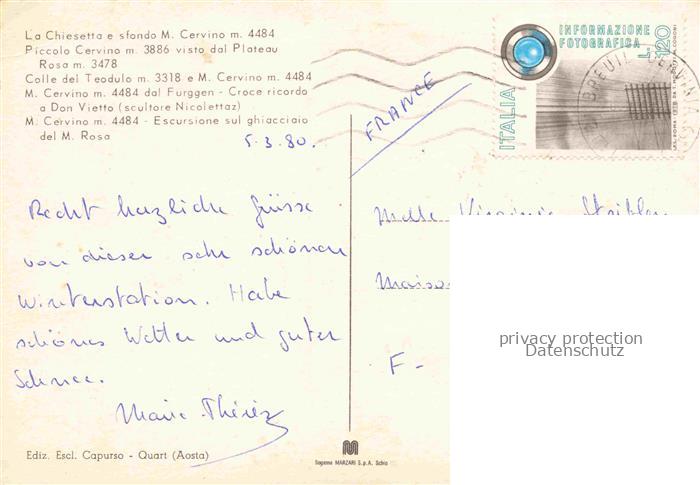 La Chiesetta e sfondo M. Cervino m. 4484
Piccolo Cervino m. 3886 visto dal Plateau
Rosa m. 3478
Colle del Teodulo m. 3318 e M. Cervino m. 4484
M. Cervino m. 4484 dal Furggen - Croce ricordo
a Don Vietto (scultore Nicolettaz)
M. Cervino m. 4484 - Escursione sul ghiacciaio
del M. Rosa
5.3.80.
FRANCE
INFORMAZIONE
FOTOGRAFICA
L. 120
ITALIA
BREUIL CERVINIA
Recht herzliche Grüsse
von dieser sehr schönen
Winterstation. Habe
schönes Wetter und guter
Schnee.
Marie-Thérèz
Melle Virginie
Maiso
F-
privacy protection
Datenschutz
Ediz. Escl. Capurso - Quart (Aosta)
Sagome MARZARI S.p.A. Schio